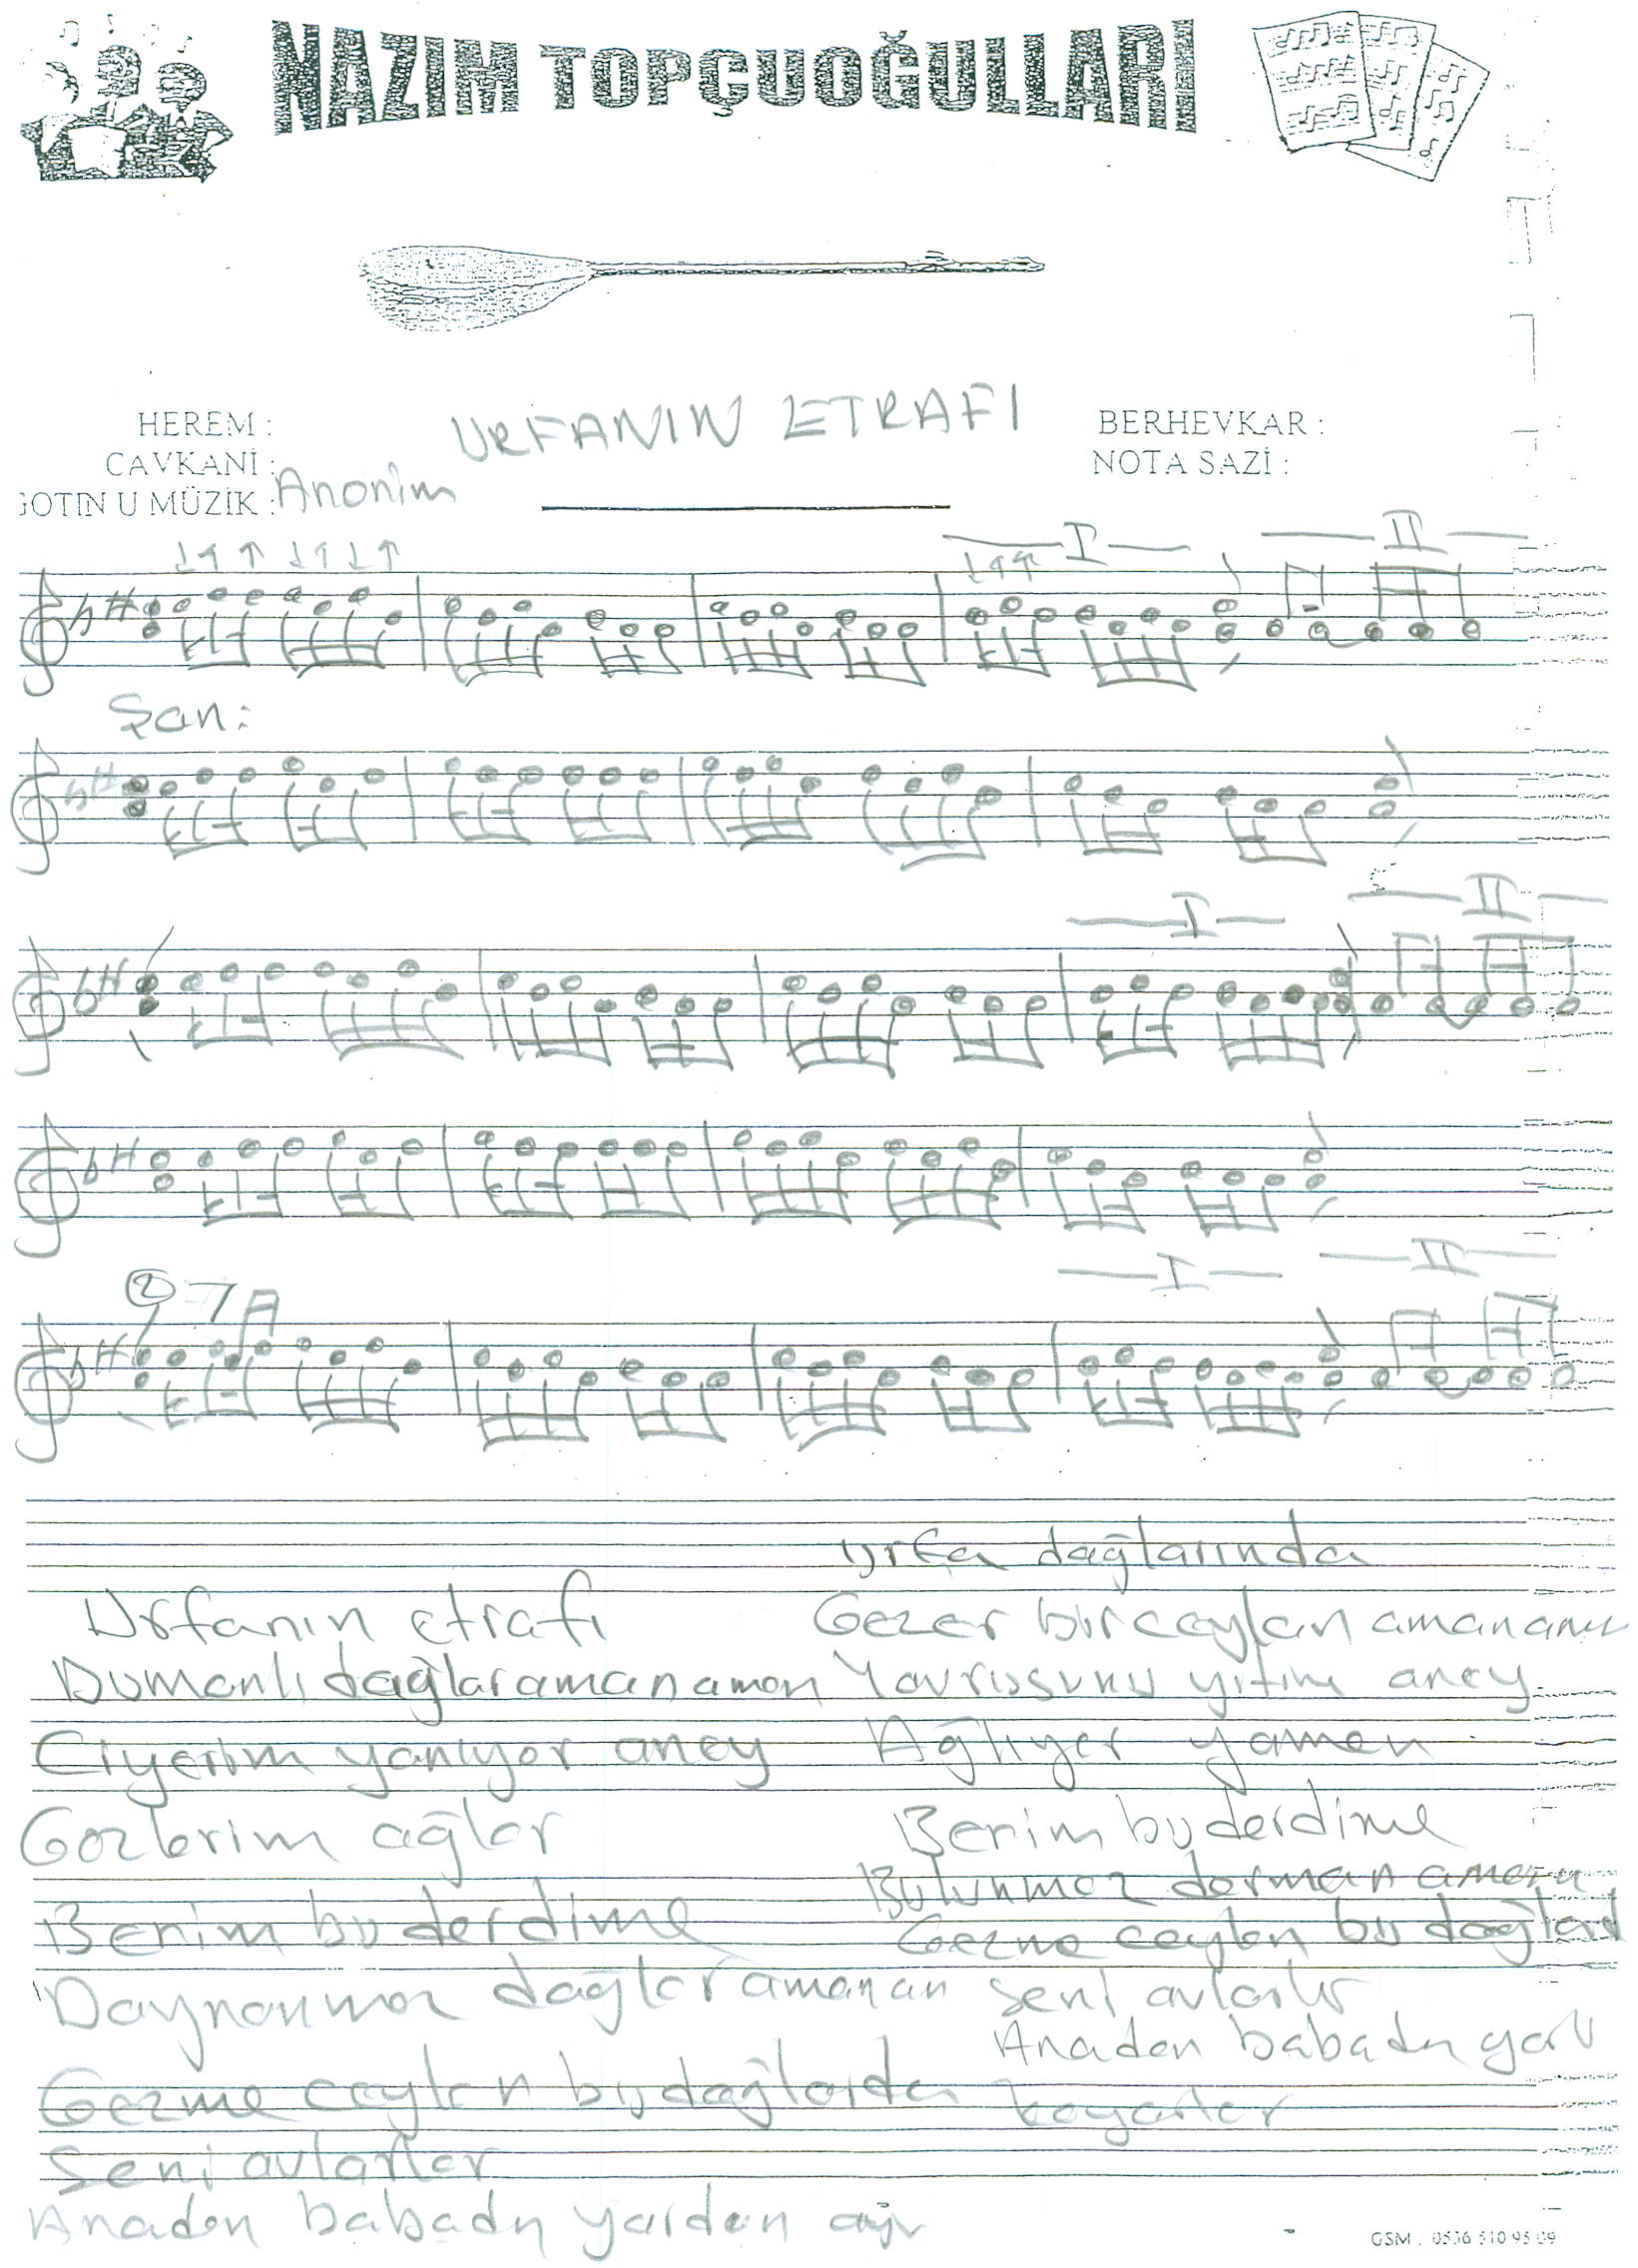 NAZIM TOPÇUOĞULLARI
URFANIN ETRAFI
HEREM :
CAVKANİ :
GOTIN U MÜZİK : Anonim
BERHEVKAR :
NOTA SAZİ :
I
II
Şan:
I
II
I
II
2
Urfanın etrafı
Dumanlı dağlar aman aman
Ciyerim yanıyor aney
Gozlerim ağlar
Benim bu derdime
Daynanmaz dağlar aman an
Gezme ceylan bu dağlarda
Seni avlarlar
Anadan babadn yardan
Urfa dağlarında
Gezer bir ceylan aman
Yavrusunu yitirm aney
Ağlıyer yaman
Benim bu derdime
Bulunmaz derman
Gezme ceylan bu dağlard
seni avlarlar
Anadan babadn
koyarlar
GSM : 0536 510 95 09